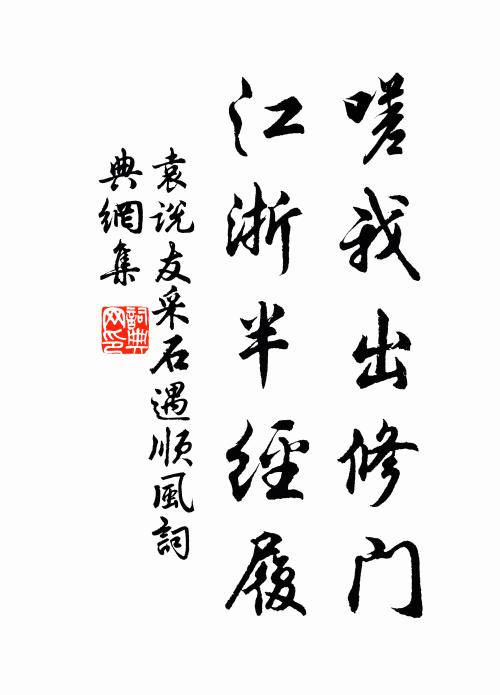 嗟我出修门
江浙半經履
袁説友采石遇順風詞
典網集
詞典网印